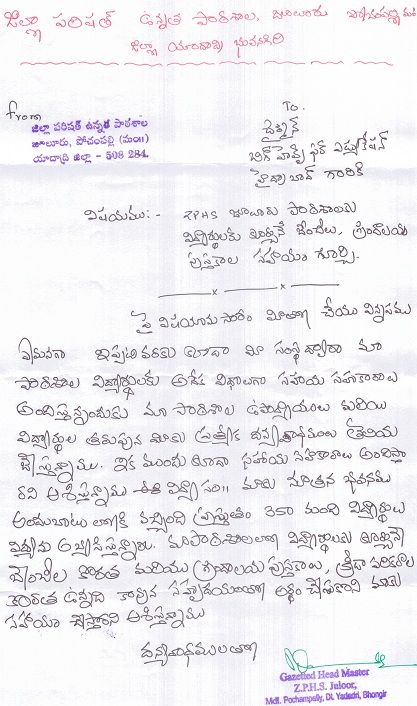 జిల్లా పరిషత్ ఉన్నత పాఠశాల, జూలూరు పోచంపల్లి మం॥
జిల్లా యాదాద్రి భువనగిరి
From
జిల్లా పరిషత్ ఉన్నత పాఠశాల
జూలూరు, పోచంపల్లి (మం॥)
యాదాద్రి జిల్లా - 508 284.
To.
చైర్మన్
బిగ్ హెల్ప్ ఫర్ ఎడ్యుకేషన్
హైద్రాబాద్ గారికి
విషయము:- ZPHS జూలూరు పాఠశాలకు
విద్యార్థులకు కూర్చునే బేంచీలు, గ్రంథాలయ
పుస్తకాల సహాయం గూర్చి.
పై విషయానుసారం మీతో చేయు విన్నపము
ఏమనగా ఇప్పటి వరకు కూడా మీ సంస్థ ద్వారా మా
పాఠశాల విద్యార్థులకు అనేక విధాలుగా సహాయ సహకారాలు
అందిస్తున్నందుకు మా పాఠశాల ఉపాధ్యాయులు మరియు
విద్యార్థుల తరుపున మీకు ప్రత్యేక ధన్యవాదములు తెలియ
చేస్తున్నాము. ఇక ముందు కూడా సహాయ సహకారాలు అందిస్తా
రని ఆశిస్తున్నాము ఈ విద్యా సం॥ మాకు నూతన భవనము
అందుబాటు లోకి వచ్చింది ప్రస్తుతం 350 మంది విద్యార్థులు
విద్యను అభ్యసిస్తున్నారు. మా పాఠశాలలో విద్యార్థులకు కూర్చునే
బేంచీల కొరత మరియు గ్రంథాలయ పుస్తకాలు, క్రీడా పరికరాల
కొరత ఉన్నది కావున సహృదయంతో అర్థం చేసుకొని మాకు
సహాయం చేస్తారని ఆశిస్తున్నాము
ధన్యవాదములతో
Gazetted Head Master
Z.P.H.S. Juloor,
Mdl. Pochampally, Dt. Yadadri, Bhongir